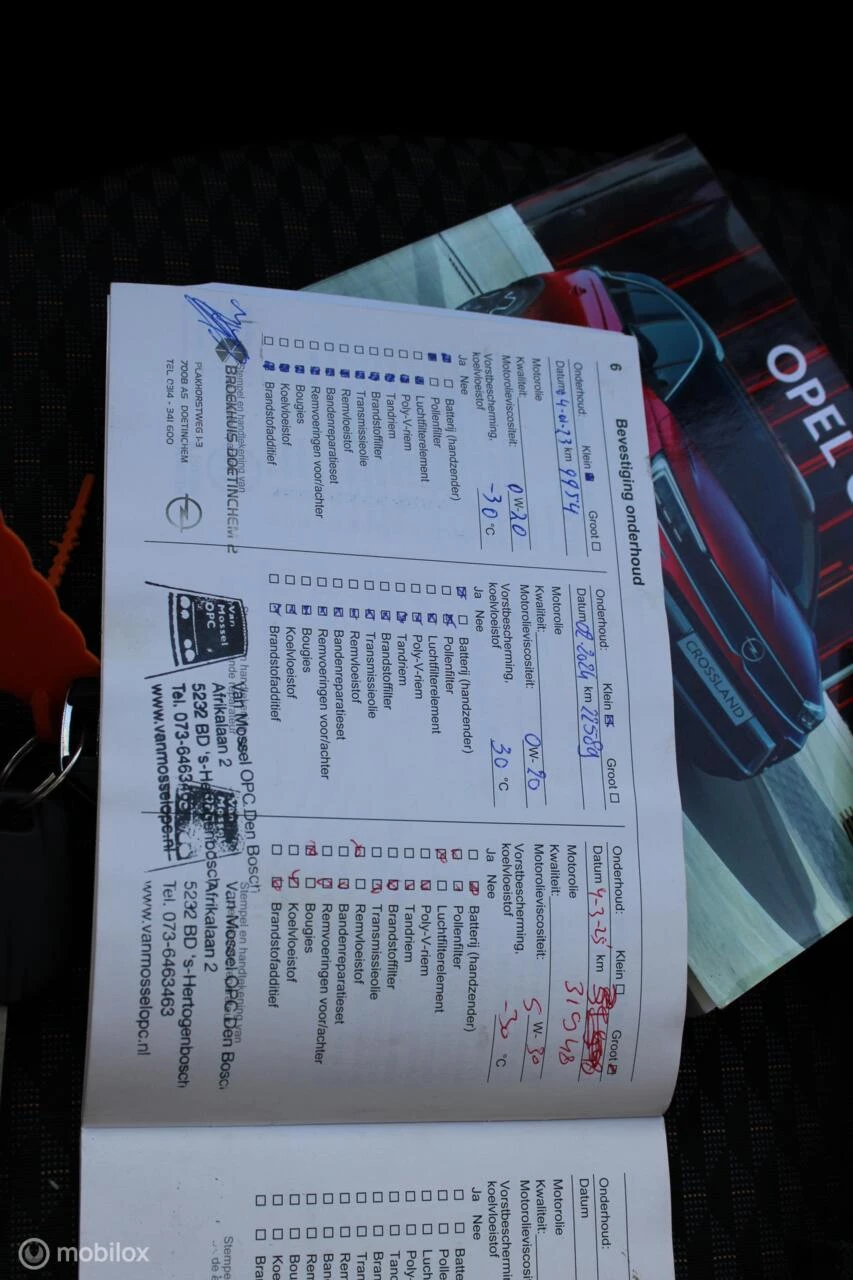 OPEL
CROSSLAND
6
Bevestiging onderhoud
Onderhoud: Klein Groot
Datum 4-01-23 km 9954
Motorolie
Kwaliteit:
Motorolieviscositeit: 0 W-20
Vorstbescherming,
koelvloeistof -30 °C
Ja Nee
Batterij (handzender)
Pollenfilter
Luchtfilterelement
Poly-V-riem
Tandriem
Brandstoffilter
Transmissieolie
Remvloeistof
Bandenreparatieset
Remvoeringen voor/achter
Bougies
Koelvloeistof
Brandstofadditief
Stempel en handtekening van
BROEKHUIS DOETINCHEM
PLAKHORSTWEG 1-3
7008 AS DOETINCHEM
TEL 0314 - 341 600
Onderhoud: Klein Groot
Datum 02 2024 km 22589
Motorolie
Kwaliteit:
Motorolieviscositeit: 0W-20
Vorstbescherming,
koelvloeistof 30 °C
Ja Nee
Batterij (handzender)
Pollenfilter
Luchtfilterelement
Poly-V-riem
Tandriem
Brandstoffilter
Transmissieolie
Remvloeistof
Bandenreparatieset
Remvoeringen voor/achter
Bougies
Koelvloeistof
Brandstofadditief
van Mossel OPC
Van Mossel OPC Den Bosch
Afrikalaan 2
5232 BD 's-Hertogenbosch
Tel. 073-6463463
www.vanmosselopc.nl
Onderhoud: Klein Groot
Datum 4-3-25 km
31948
Motorolie
Kwaliteit:
Motorolieviscositeit: 5 W-30
Vorstbescherming,
koelvloeistof -30 °C
Ja Nee
Batterij (handzender)
Pollenfilter
Luchtfilterelement
Poly-V-riem
Tandriem
Brandstoffilter
Transmissieolie
Remvloeistof
Bandenreparatieset
Remvoeringen voor/achter
Bougies
Koelvloeistof
Brandstofadditief
Stempel en handtekening van
Van Mossel OPC Den Bosc
Afrikalaan 2
5232 BD 's-Hertogenbosch
Tel. 073-6463463
www.vanmosselopc.nl
Onderhoud:
Datum
Motorolie
Kwaliteit:
Motorolieviscosit
Vorstbeschermin
koelvloeistof
Ja Nee
Batte
Poll
Luch
Poly-
Tand
Bran
Tran
Rem
Ban
Rem
Bou
Koe
Bra
Stempe
mobilox